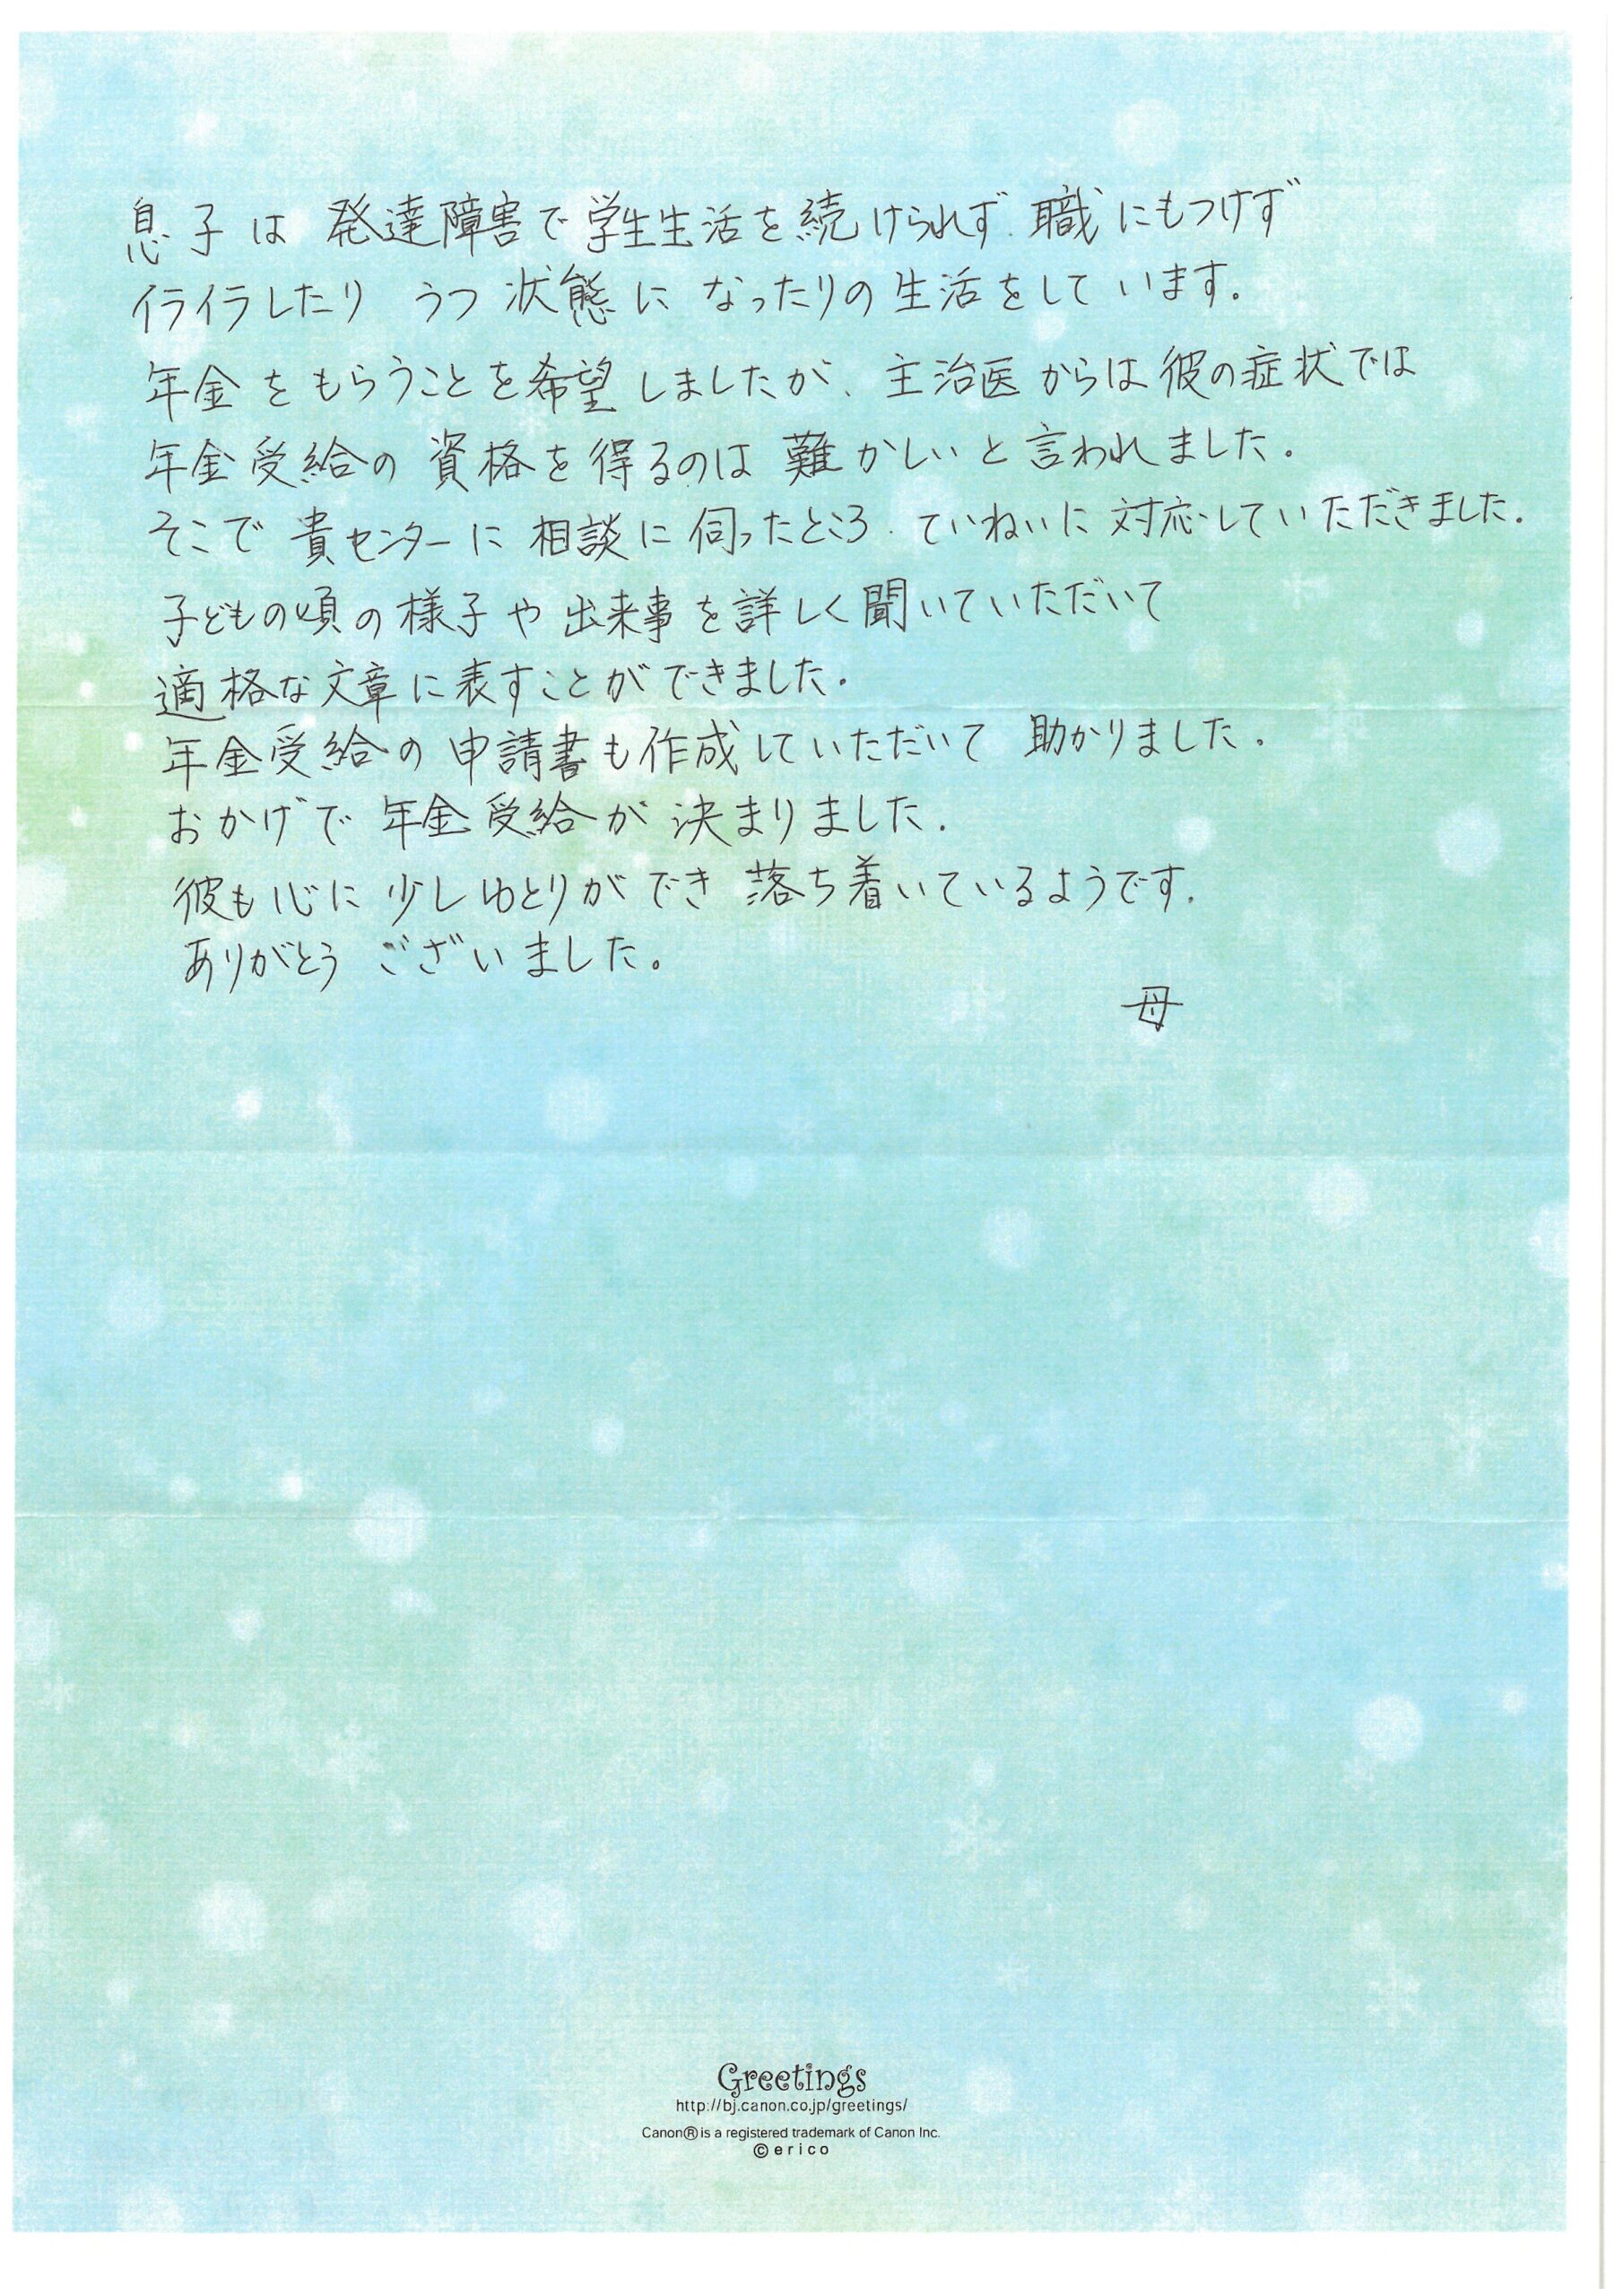 息子は 発達障害で学生生活を続けられず、職にもつけず
イライラしたり うつ状態に なったりの生活をしています。
年金をもらうことを希望しましたが、主治医からは彼の症状では
年金受給の資格を得るのは難かしいと言われました。
そこで貴センターに相談に伺ったところ、ていねいに対応していただきました。
子どもの頃の様子や出来事を詳しく聞いていただいて
適格な文章に表すことができました。
年金受給の申請書も作成していただいて 助かりました。
おかげで年金受給が決まりました。
彼も心に少しゆとりができ 落ち着いているようです。
ありがとう ございました。
母
Greetings
http://bj.canon.co.jp/greetings/
Canon®is a registered trademark of Canon Inc.
©erico